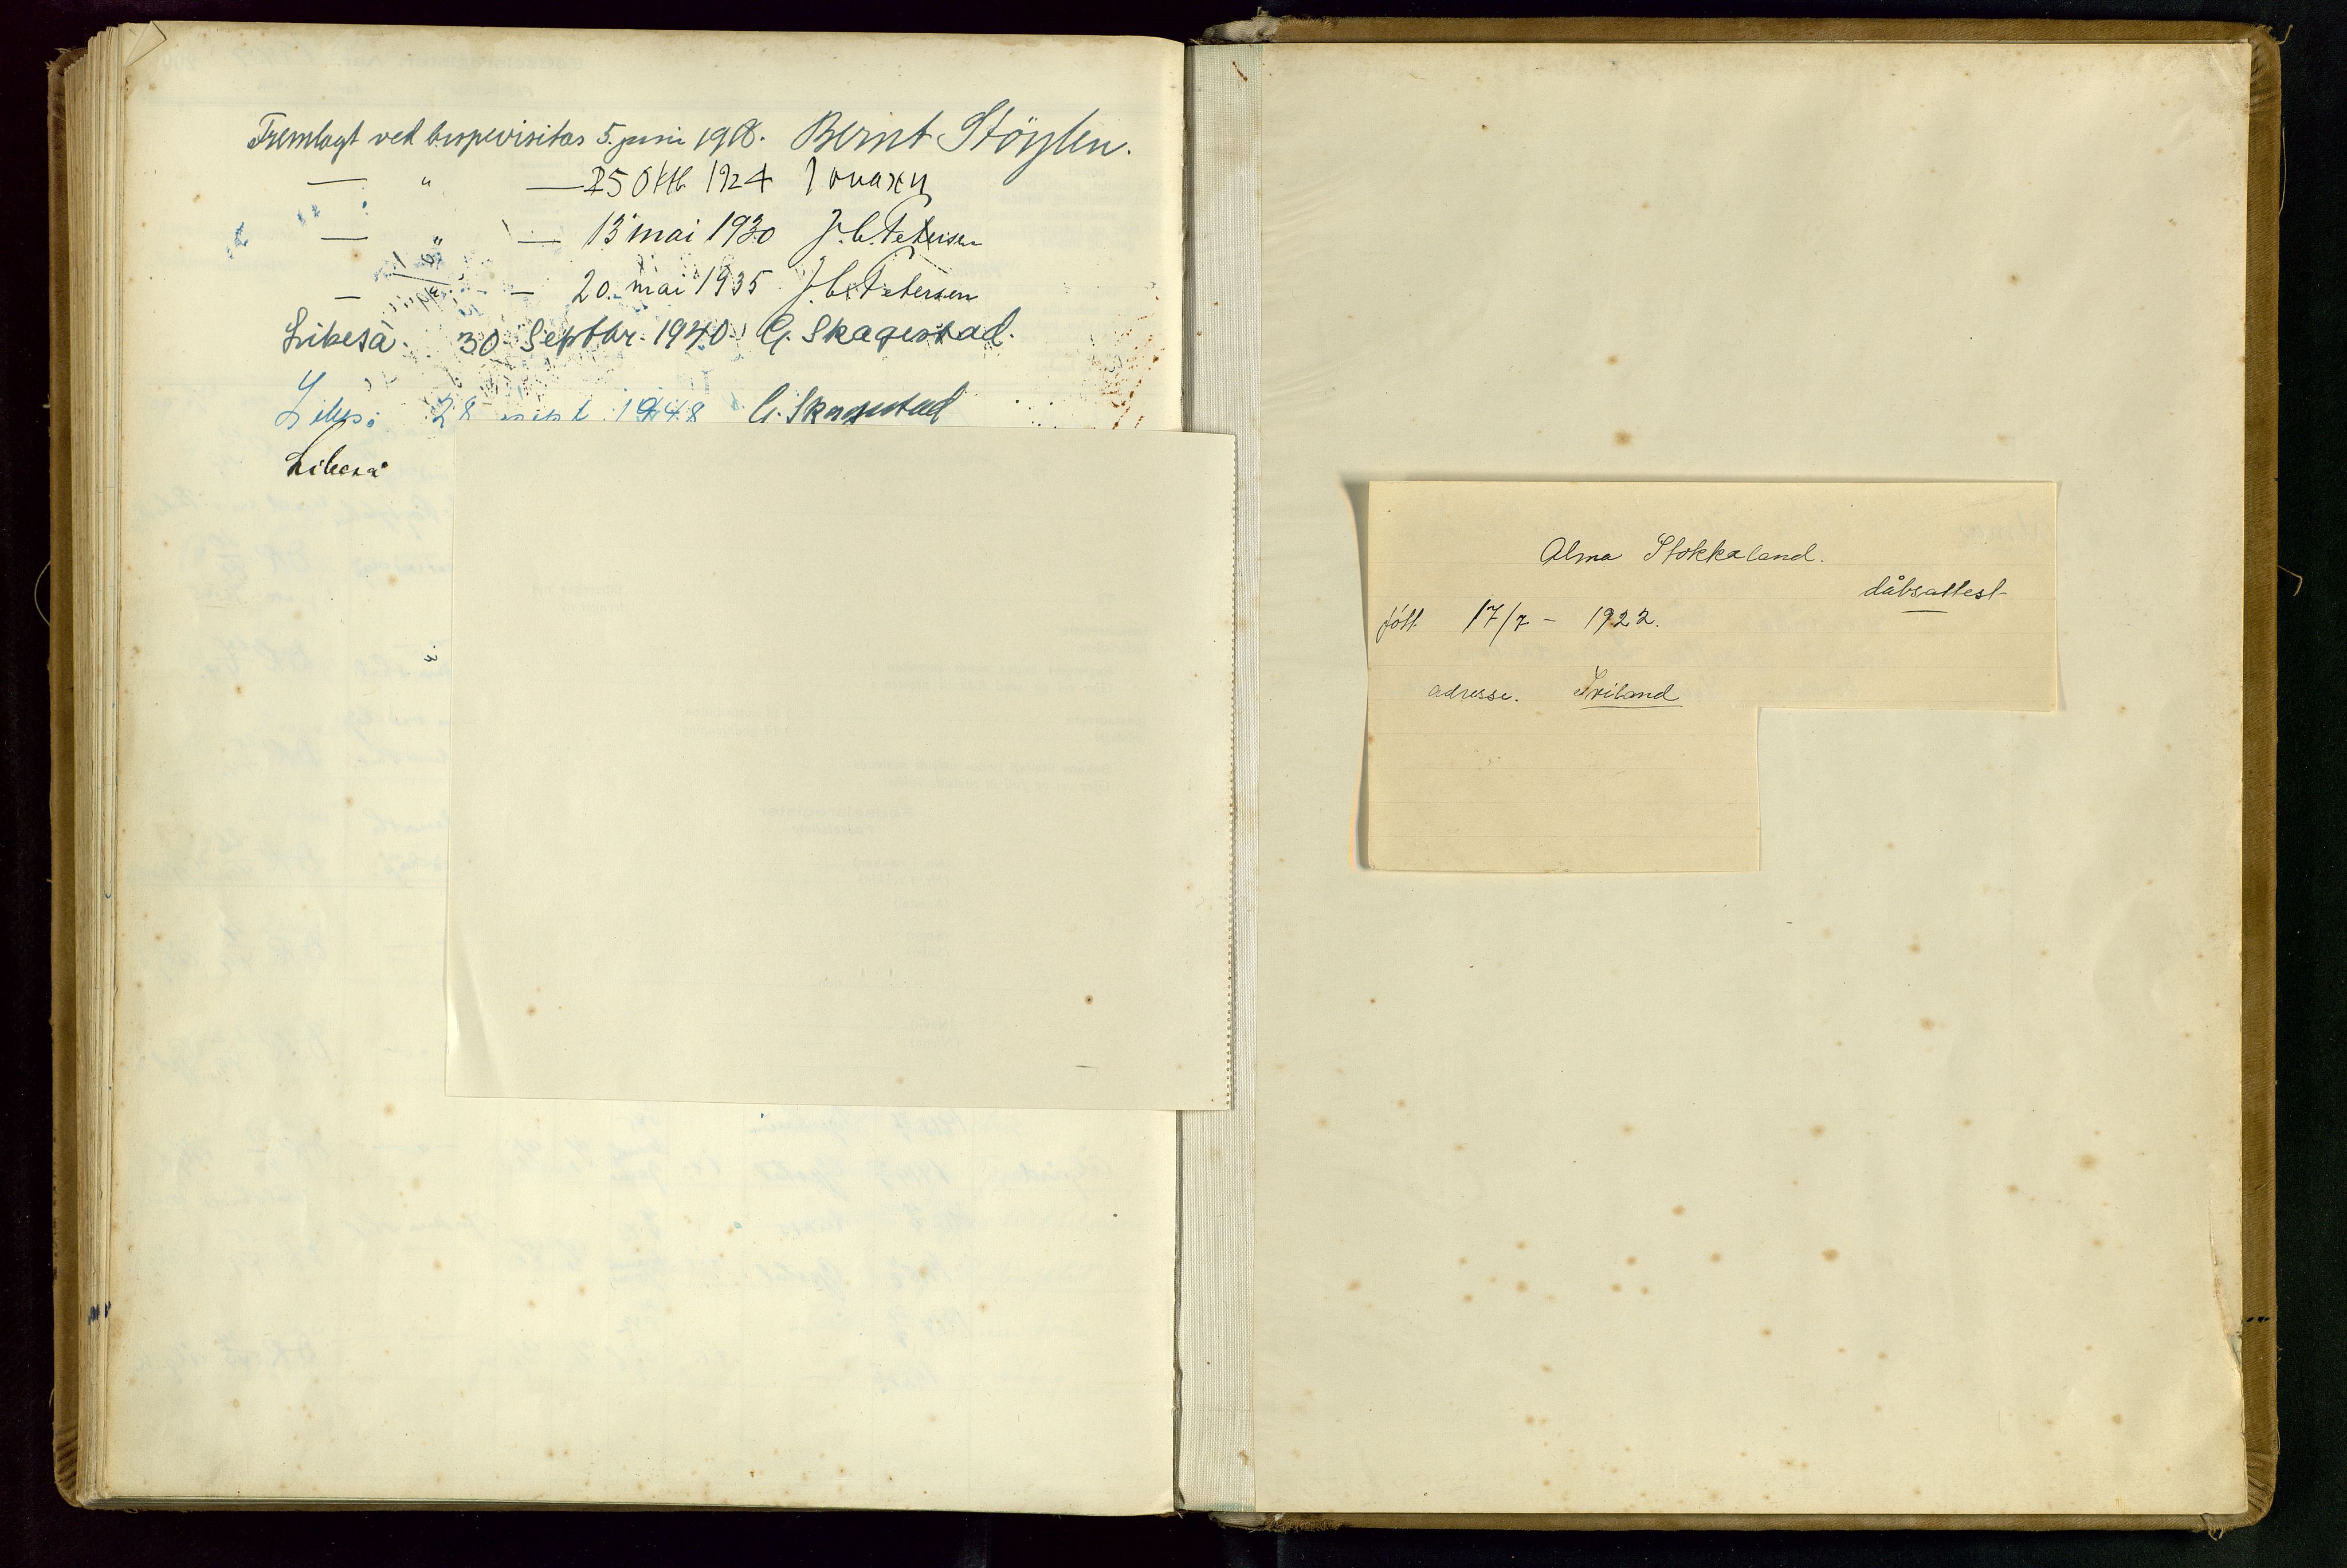 Fremlagt ved bispevisitas 5. juni 1918. Bernt Støylen.
— " — 25 Oktb 1924
— " — 13 mai 1930 J. C. Petersen
— — 20. mai 1935 J. C. Petersen
Likeså. 30. Septbr. 1940. G. Skagestad.
28 sept 1948 G. Skagestad
Likeså
Alma Stokkaland.
dåbsattest
født 17/7 - 1922.
adresse.